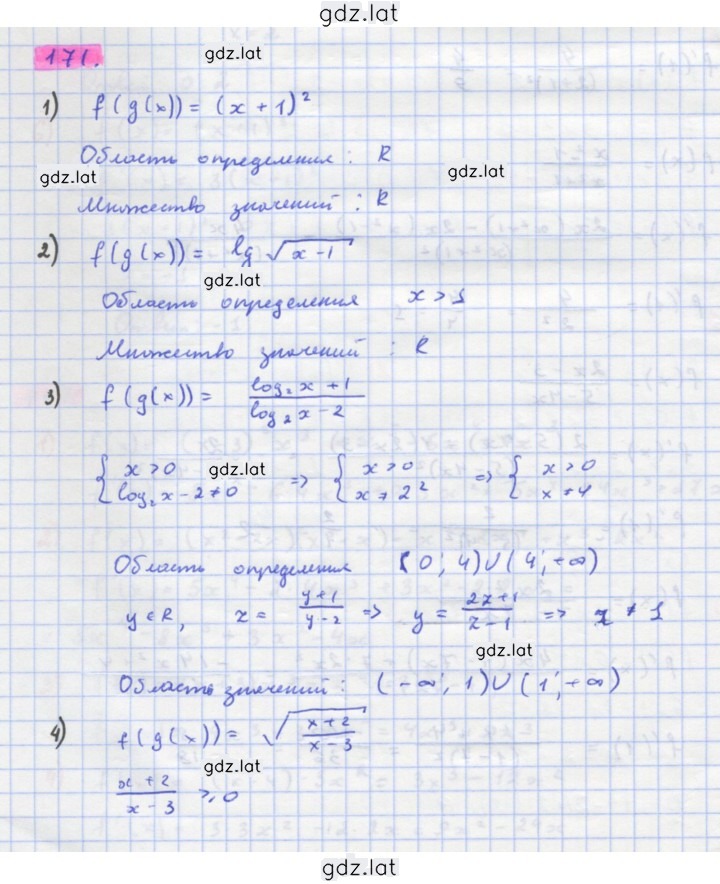 gdz.lat
171. gdz.lat
1) f(g(x)) = (x + 1)²
Область определения : R
gdz.lat gdz.lat
Множество значений : R
2) f(g(x)) = lg √(x - 1)
gdz.lat
Область определения x > 1
Множество значений : R
3) f(g(x)) = (log₂x + 1)/(log₂x - 2)
{ x > 0 gdz.lat => { x > 0 => { x > 0
log₂x - 2 ≠ 0 x ≠ 2² x ≠ 4
Область определения (0; 4) ∪ (4; +∞)
y ∈ R, z = (y+1)/(y-2) => y = (2z+1)/(z-1) => z ≠ 1
gdz.lat
Область значений : (-∞; 1) ∪ (1; +∞)
4) f(g(x)) = √((x+2)/(x-3))
gdz.lat
(x+2)/(x-3) ≥ 0
gdz.lat